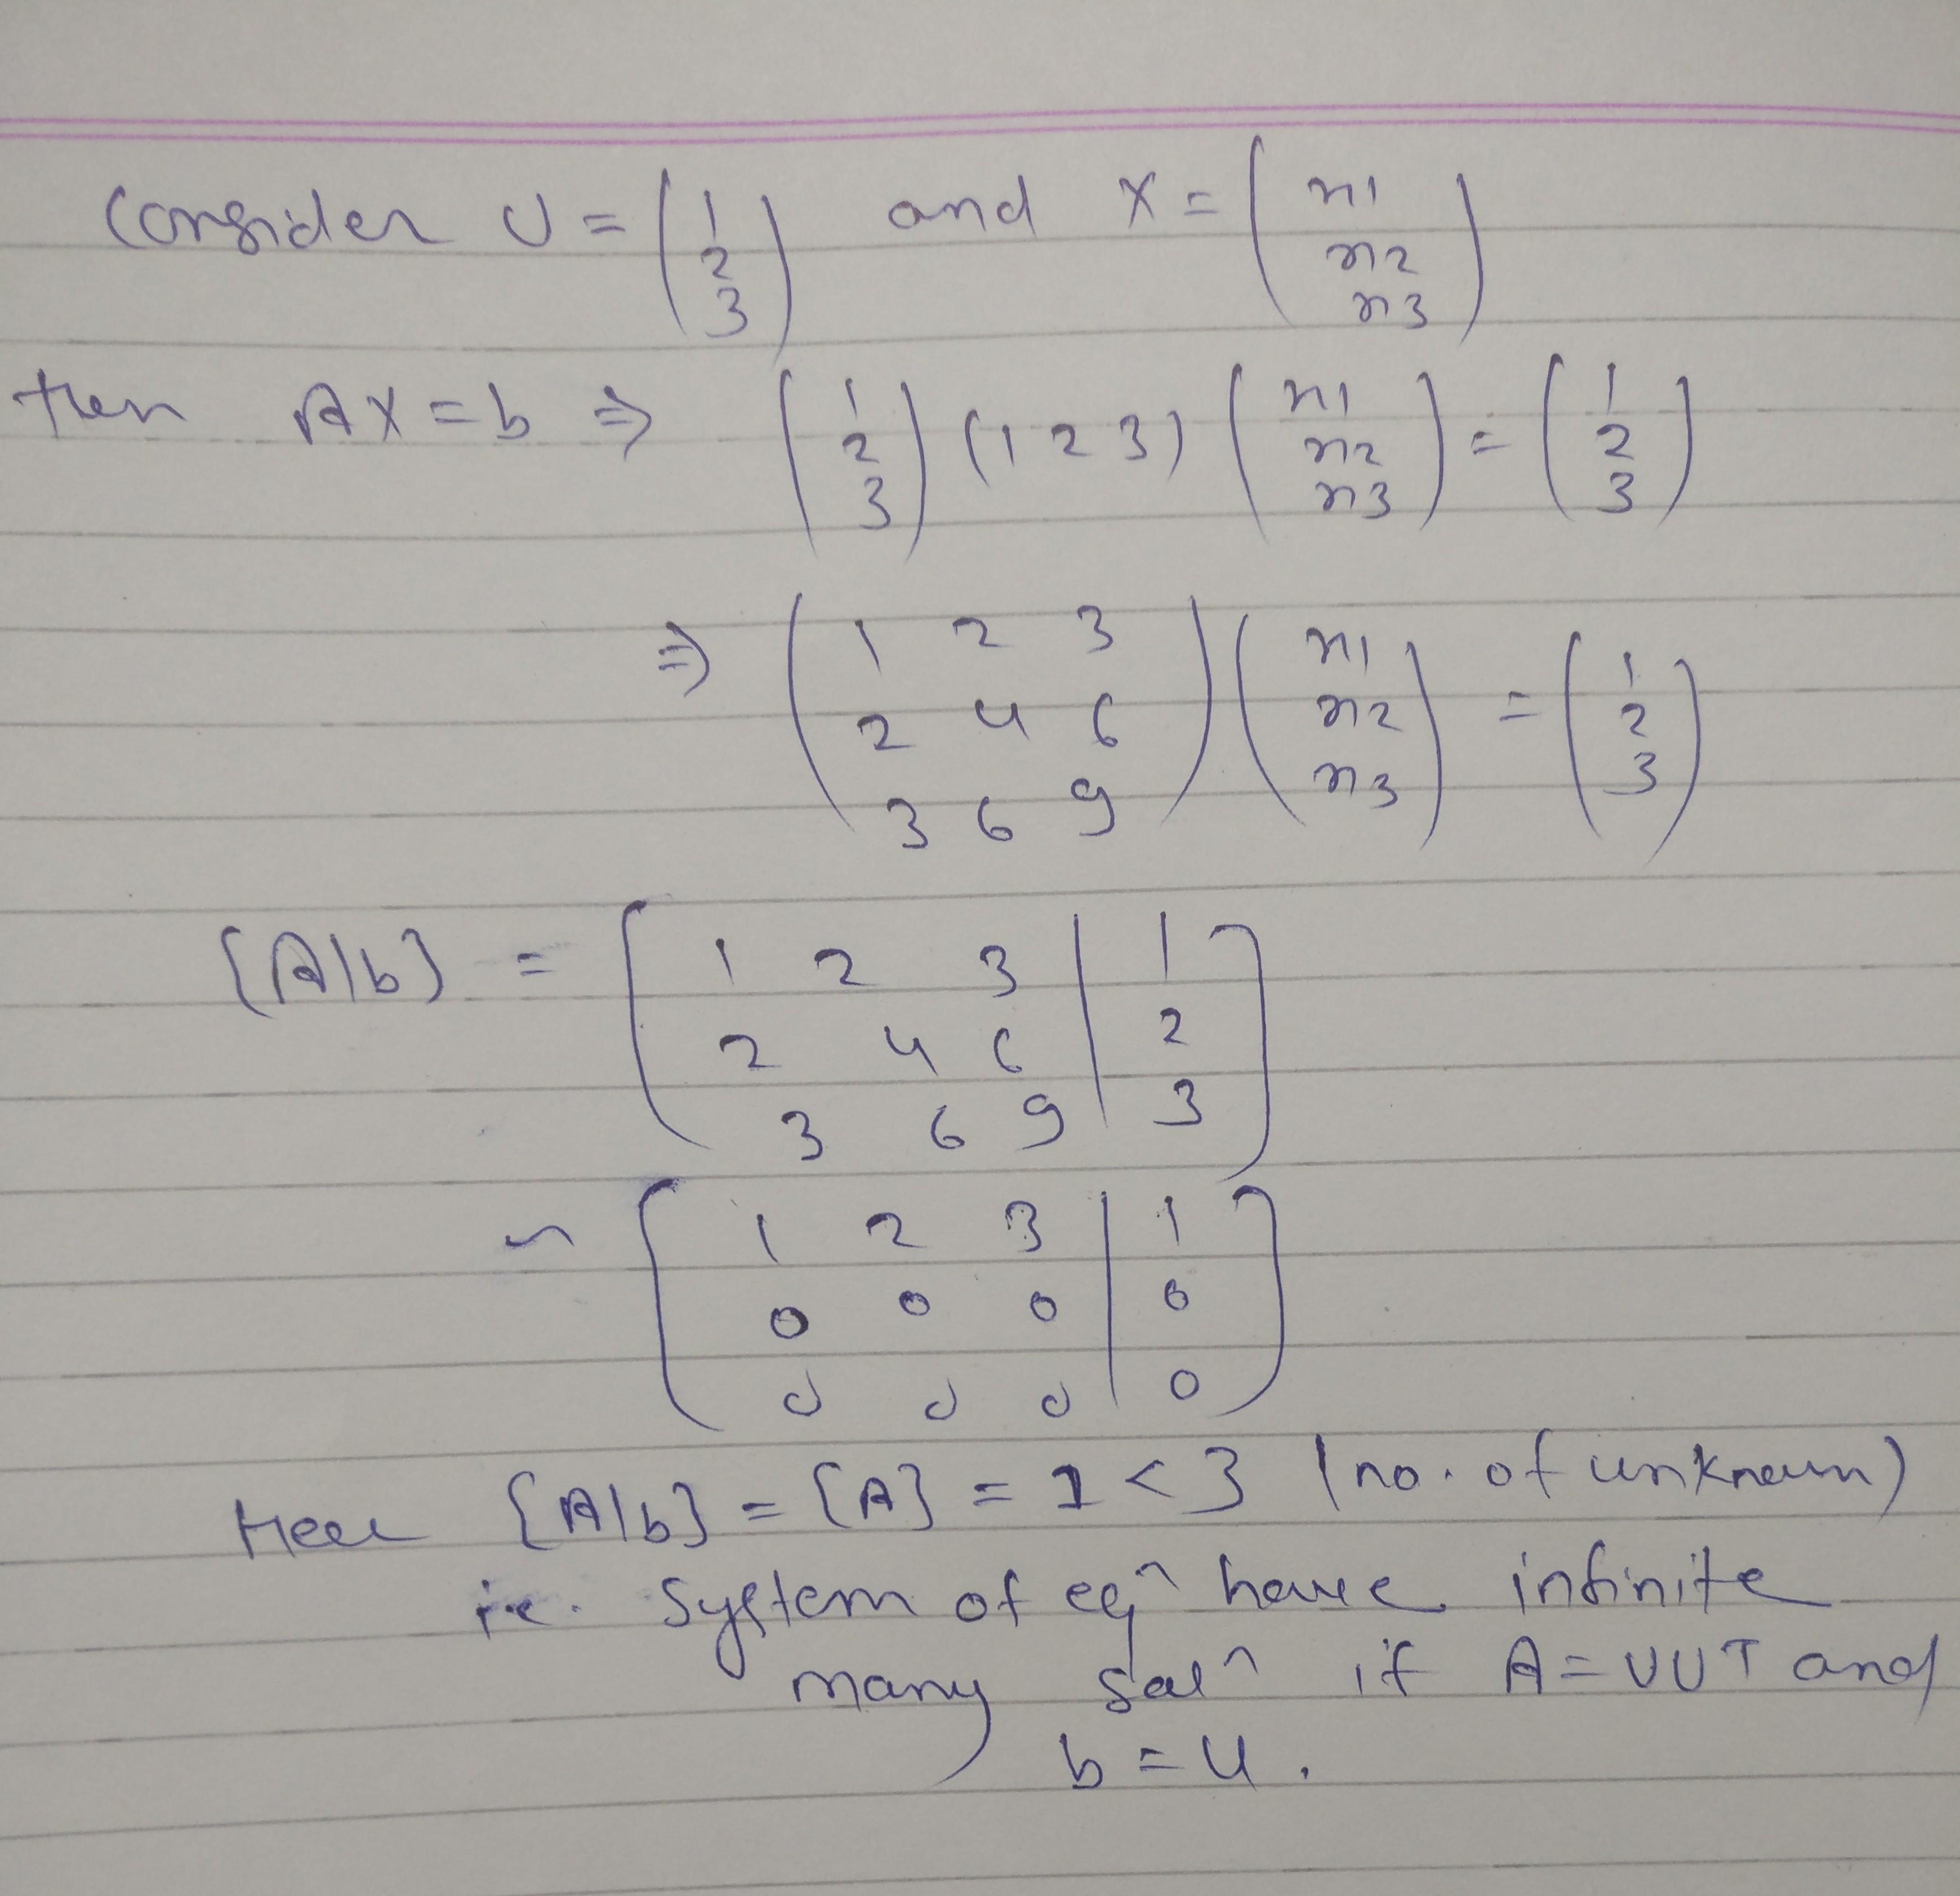 Consider U = (1 2 3) and X = (x1 x2 x3)
then AX = b ⇒ (1 2 3) (1 2 3) (x1 x2 x3) = (1 2 3)
⇒ (1 2 3 2 4 6 3 6 9) (x1 x2 x3) = (1 2 3)
[A|b] = [1 2 3 | 1
2 4 6 | 2
3 6 9 | 3]
~ [1 2 3 | 1
0 0 0 | 0
0 0 0 | 0]
Here [A|b] = [A] = 1 < 3 (no. of unknown)
i.e. System of eqn have infinite
many soln if A = UUT and
b = u.